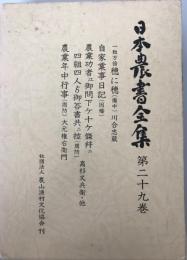 日本農書全集 第二十九巻
一粒万倍 穂に穂(備中) 川合忠蔵
自家業事日記(因幡)
農業功者江御問下ケ十ケ條并ニ
四組四人ゟ御答書共ニ控(周防) 高杉又兵衛・他
農業年中行事(周防) 大元権右衛門
社団法人 農山漁村文化協会 刊